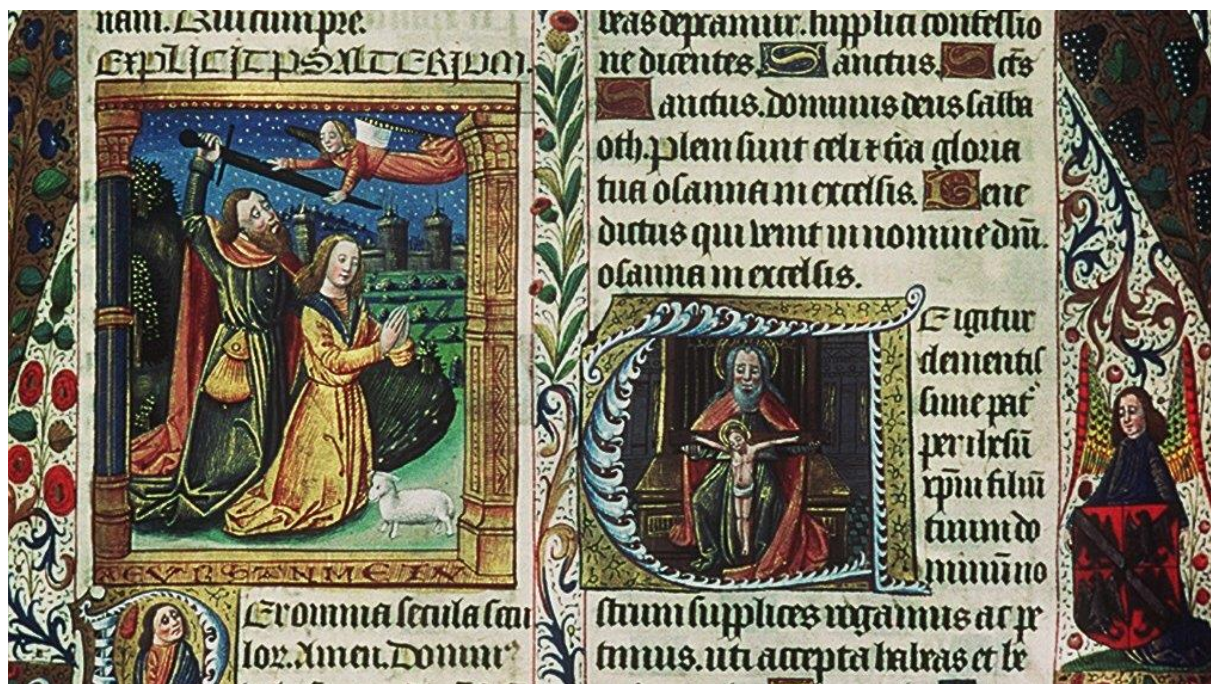 nam. Qui cum pre.
EXPLICIT PSALTERIUM.
Per omnia secula secu
lor. Amen. Domin⁹
beas depramur. supplici confessio
ne dicentes. Sanctus. Sc̄s
Sanctus. dominus deus saba
oth. Pleni sunt celi ⁊ t̄ra gloria
tua osanna in excelsis. Bene
dictus qui venit in nomine dn̄i.
osanna in excelsis.
Te igitur
clementis
sime pat̄
per ihesū
xp̄m filiū
tuum do
minū no
strum supplices rogamus ac pe
timus. uti accepta habeas et be